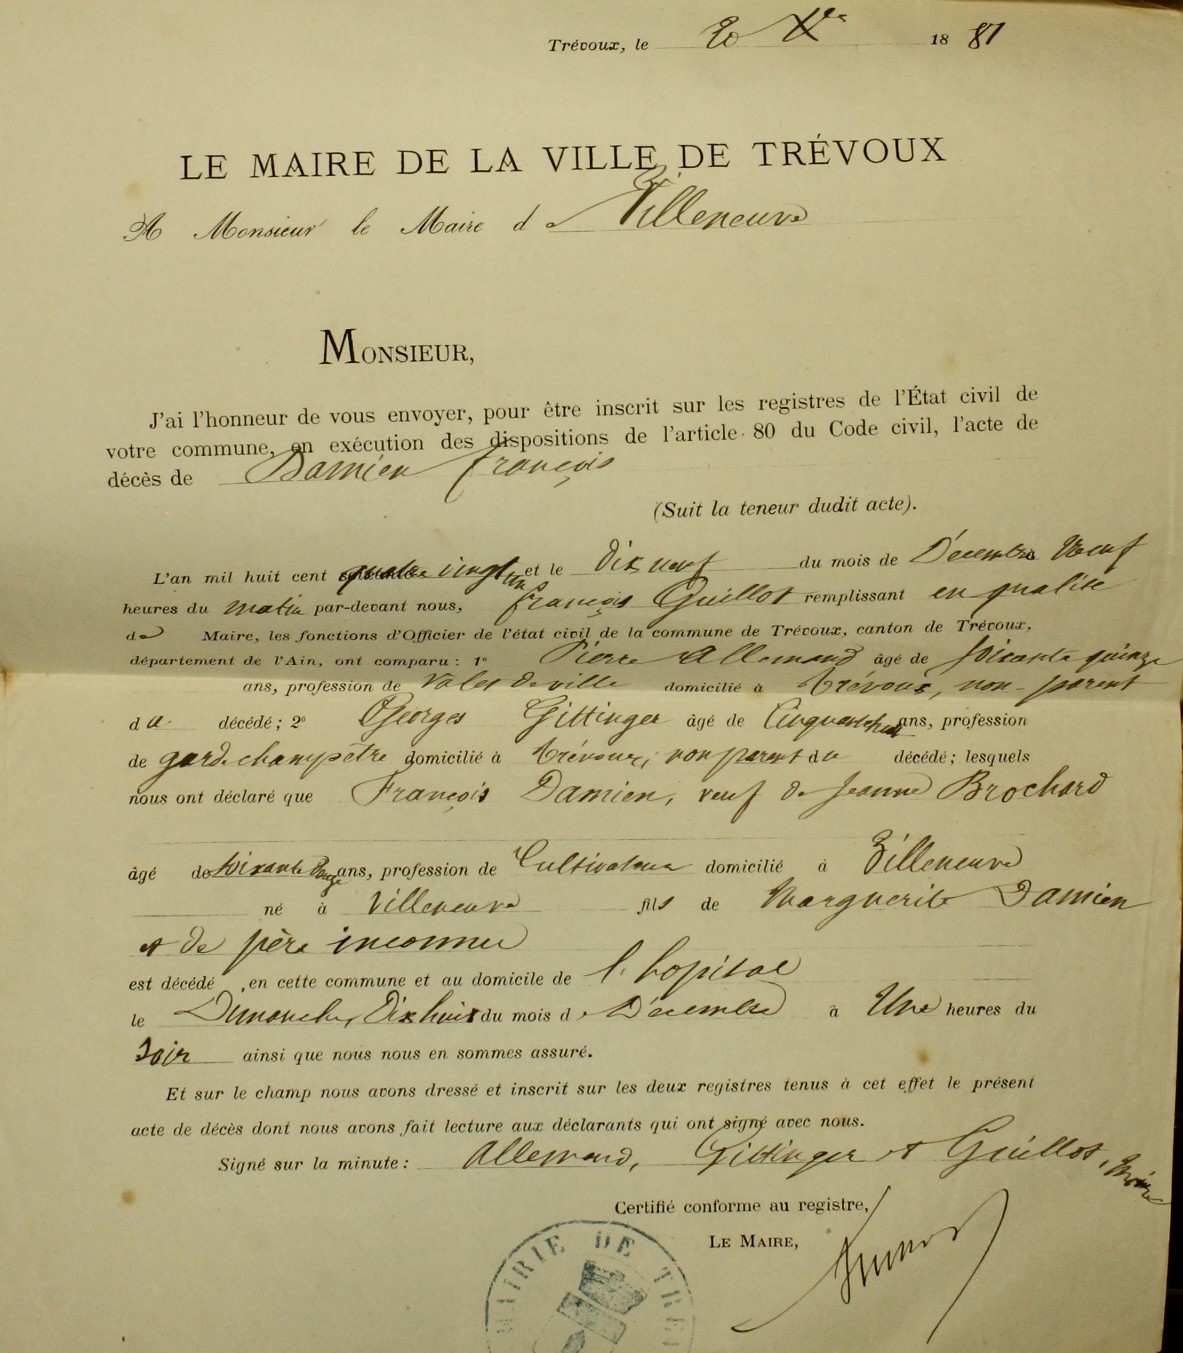 Trévoux, le 20 Xbre 1881
LE MAIRE DE LA VILLE DE TRÉVOUX
A Monsieur le Maire de Villeneuve
MONSIEUR,
J'ai l'honneur de vous envoyer, pour être inscrit sur les registres de l'État civil de
votre commune, en exécution des dispositions de l'article 80 du Code civil, l'acte de
décès de Damien François
(Suit la teneur dudit acte).
L'an mil huit cent quatre vingt un et le Dix neuf du mois de Décembre Neuf
heures du matin par-devant nous, François Guillot remplissant en qualité
de Maire, les fonctions d'Officier de l'état civil de la commune de Trévoux, canton de Trévoux,
département de l'Ain, ont comparu : 1° Pierre Allemand âgé de soixante quinze
ans, profession de Valet de ville domicilié à Trévoux, non parent
du décédé ; 2° Georges Gittinger âgé de Cinquante huit ans, profession
de garde champêtre domicilié à Trévoux, non parent du décédé ; lesquels
nous ont déclaré que François Damien, veuf de Jeanne Brochard
âgé de soixante onze ans, profession de Cultivateur domicilié à Villeneuve
né à Villeneuve fils de Marguerite Damien
et de père inconnu
est décédé, en cette commune et au domicile de l'hopital
le Dimanche, Dix huit du mois de Décembre à Une heures du
soir ainsi que nous nous en sommes assuré.
Et sur le champ nous avons dressé et inscrit sur les deux registres tenus à cet effet le présent
acte de décès dont nous avons fait lecture aux déclarants qui ont signé avec nous.
Signé sur la minute : Allemand, Gittinger et Guillot, Maire
Certifié conforme au registre,
LE MAIRE,
MAIRIE DE TRÉ